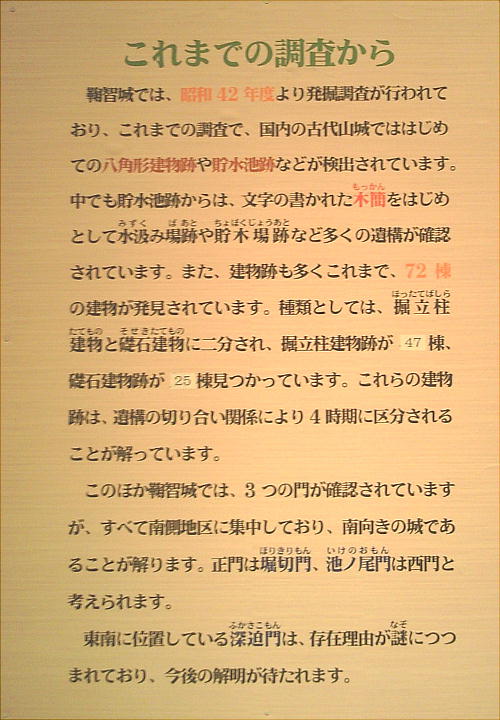 これまでの調査から
鞠智城では、昭和 42 年度より発掘調査が行われて
おり、これまでの調査で、国内の古代山城でははじめ
ての八角形建物跡や貯水池跡などが検出されています。
もっかん
中でも貯水池跡からは、文字の書かれた木簡をはじめ
みずく ばあと ちょぼくじょうあと
として水汲み場跡や貯木場跡など多くの遺構が確認
されています。また、建物跡も多くこれまで、72 棟
ほったてばしら
の建物が発見されています。種類としては、掘立柱
たてもの そせきたてもの
建物と礎石建物に二分され、掘立柱建物跡が 47 棟、
礎石建物跡が 25 棟見つかっています。これらの建物
跡は、遺構の切り合い関係により 4 時期に区分される
ことが解っています。
このほか鞠智城では、3 つの門が確認されています
が、すべて南側地区に集中しており、南向きの城であ
ほりきりもん いけのおもん
ることが解ります。正門は堀切門、池ノ尾門は西門と
考えられます。
ふかさこもん なぞ
東南に位置している深迫門は、存在理由が謎につつ
まれており、今後の解明が待たれます。